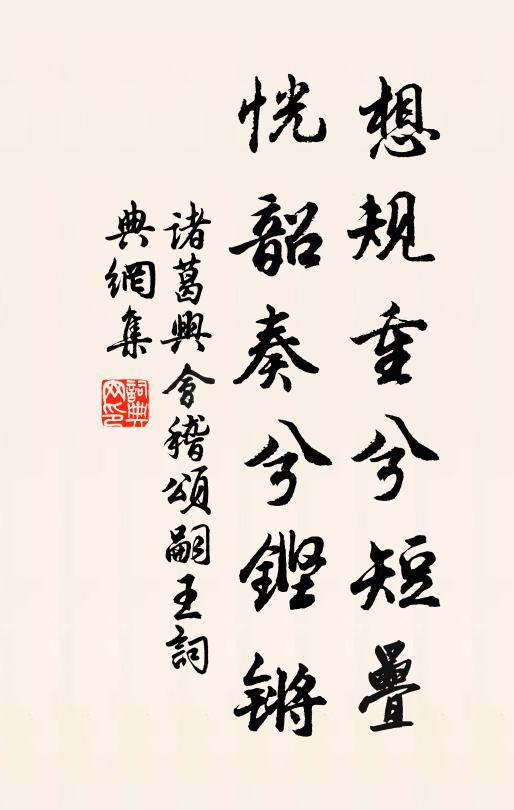 想规重兮短疊
恍韶奏兮鏗鏘
诸葛興會稽頌嗣王詞
典網集
詞典
网印